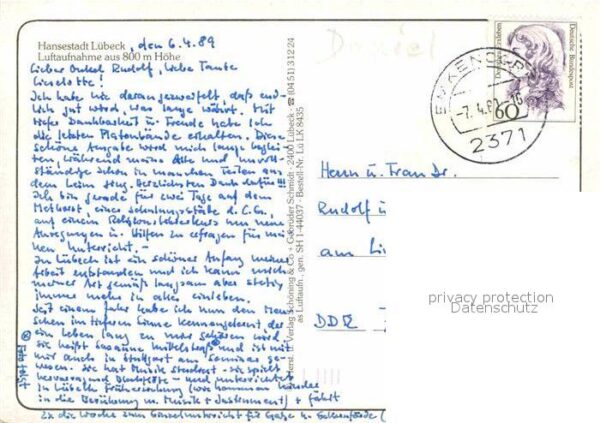 Hansestadt Lübeck, den 6.4.89
Luftaufnahme aus 800 m Höhe
Lieber Onkel Rudolf, liebe Tante
Lieselotte!
Ich habe nie daran gezweifelt, daß end-
lich gut wird, was lange währt. Mit
tiefer Dankbarkeit u. Freude habe ich
die letzten Platonbände erhalten. Diese
schöne Ausgabe wird mich lange beglei-
ten, während meine Alte und unvoll-
ständige schon in manchen Teilen aus
dem Leim ging. Herzlichsten Dank dafür!!!
Ich bin gerade für zwei Tage auf dem
einer Schulungsstätte d. C.G.,
auf einem Religionslehrerkurs um neue
Anregungen u. Hilfen zu erfragen für mei-
nen Unterricht. -
In Lübeck ist ein schöner Anfang meiner
Arbeit entstanden und ich kann mich
meiner Art gemäß langsam aber stetig
immer mehr in alles einleben.
Seit einem Jahr habe ich nun den Men-
schen im tieferen Sinne kennengelernt, der
ein Leben lang zu mir gehören wird.
Sie heißt Susanne und ist mit
mir auch in Stuttgart am Seminar ge-
wesen. Sie hat Musik studiert - sie spielt
hervorragend Blockflöte - und unterrichtet
in Lübeck
in die Berührung m. Musik + Instrument) + fährt
2x die Woche zum
Foto Holst
Herst. u. Verlag Schöning & Co + Gebrüder Schmidt · 2400 Lübeck · ☎ (0451) 31 22 24
as Luftaufn., gen. SH 1-44037 · Bestell-Nr. Lü LK 8435
Daniel
Dorothea Erxleben
Deutsche Bundespost
60
-7.4.89-16
2371
Herrn u. Frau Dr.
Rudolf u
am Li
DDR
privacy protection
Datenschutz